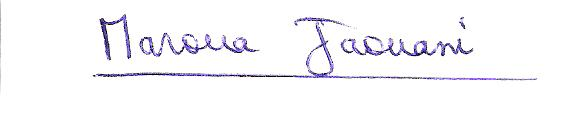 Maroua Jaouani